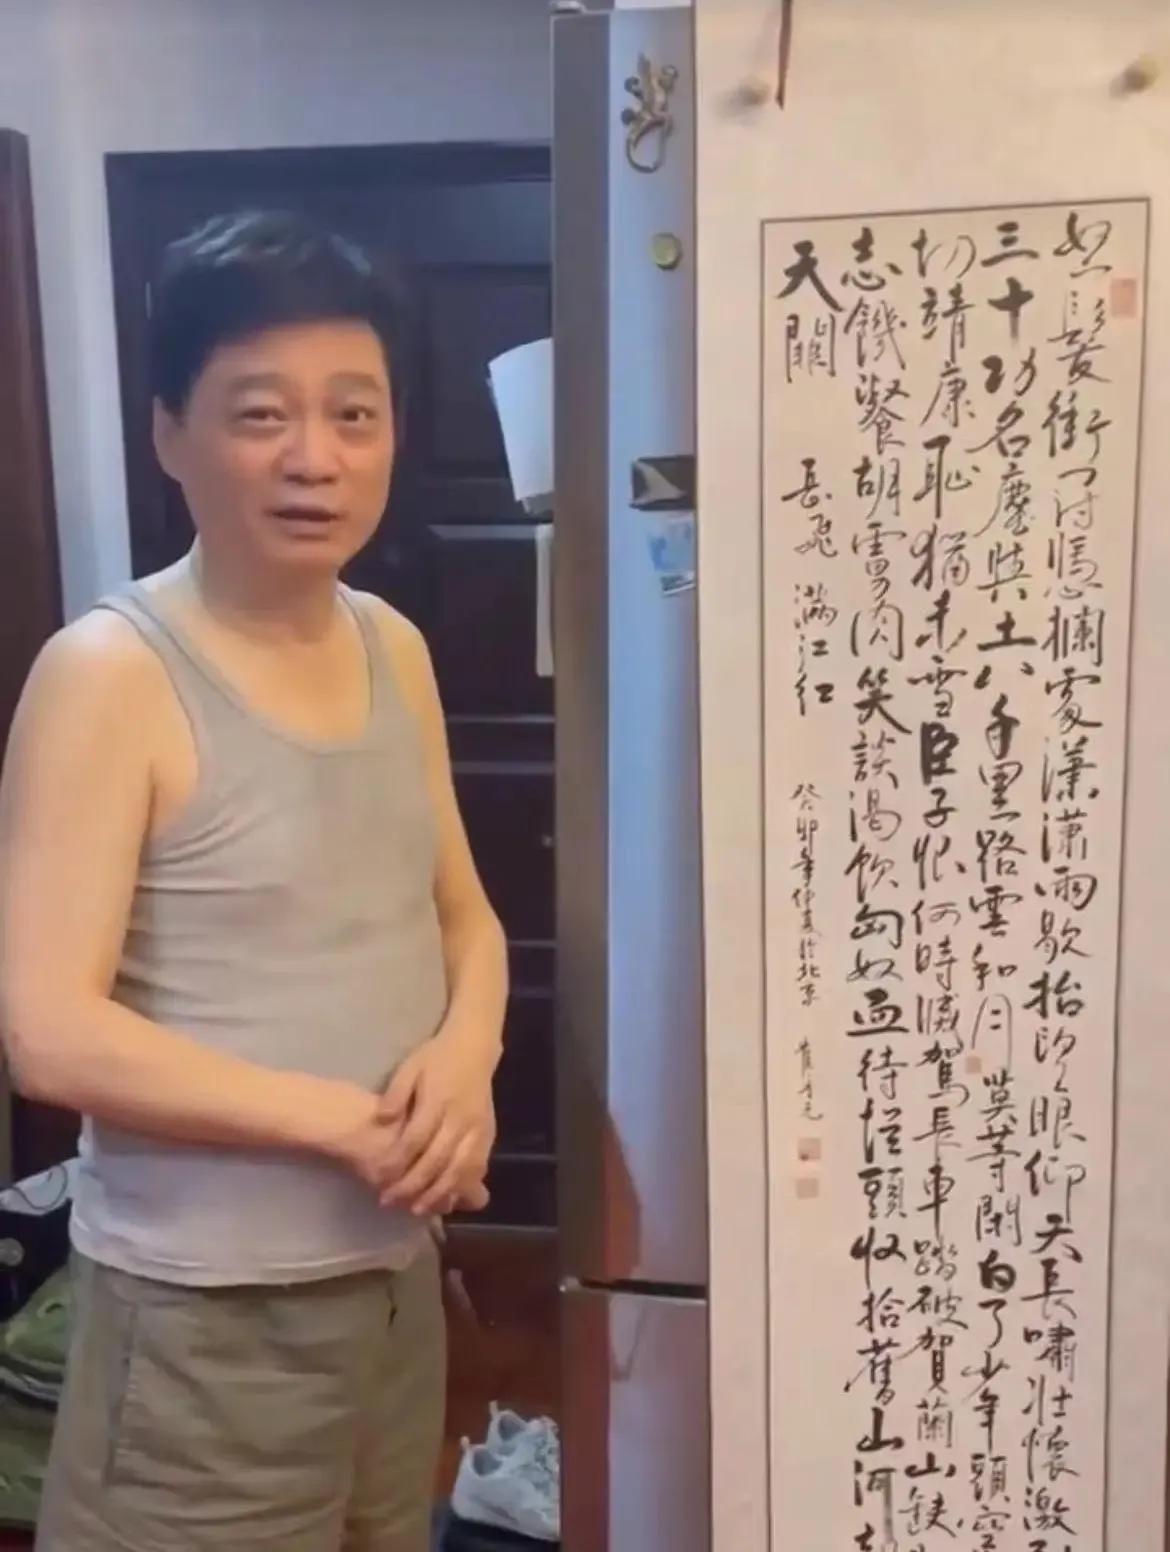 怒髮衝冠憑攔處瀟瀟雨歇抬望眼仰天長嘯壯懷激
三十功名塵與土八千里路雲和月莫等閑白了少年頭空
切靖康恥猶未雪臣子恨何時滅駕長車踏破賀蘭山缺
志饑餐胡虜肉笑談渴飲匈奴血待從頭收拾舊山河
天闕 岳飛 滿江紅 癸卯年仲夏於北京 崔永元